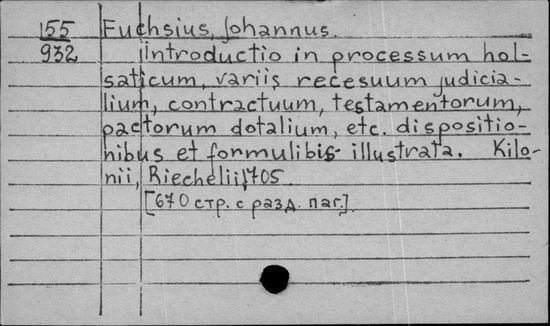 155 Fuchsius, Johannus.
932 Introductio in processum hol-
saticum, variis recesuum judicia-
lium, contractuum, testamentorum,
pactorum dotalium, etc. dispositio-
nibus et formulibis illustrata. Kilo-
nii, Riechelii, 1705.
[670 стр. с разд. паг.].